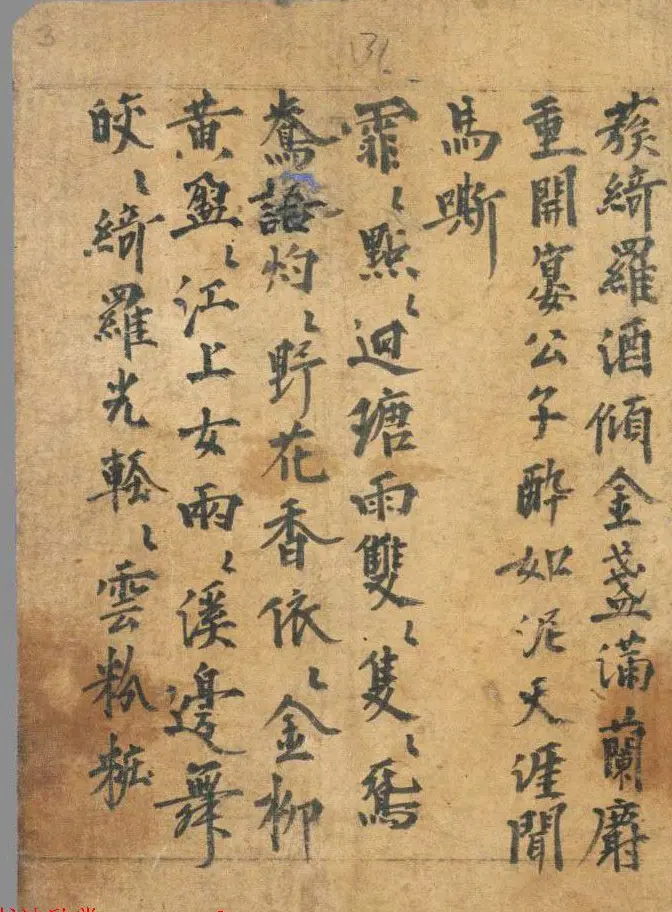 蔟綺羅酒傾金盞滿蘭麝
重開宴公子醉如泥天涯聞
馬嘶
霏〻點〻迴塘雨雙〻隻〻鴛
鴦語灼〻野花香依〻金柳
黃盈〻江上女兩〻溪邊舞
皎〻綺羅光輕〻雲粉粧
31
3